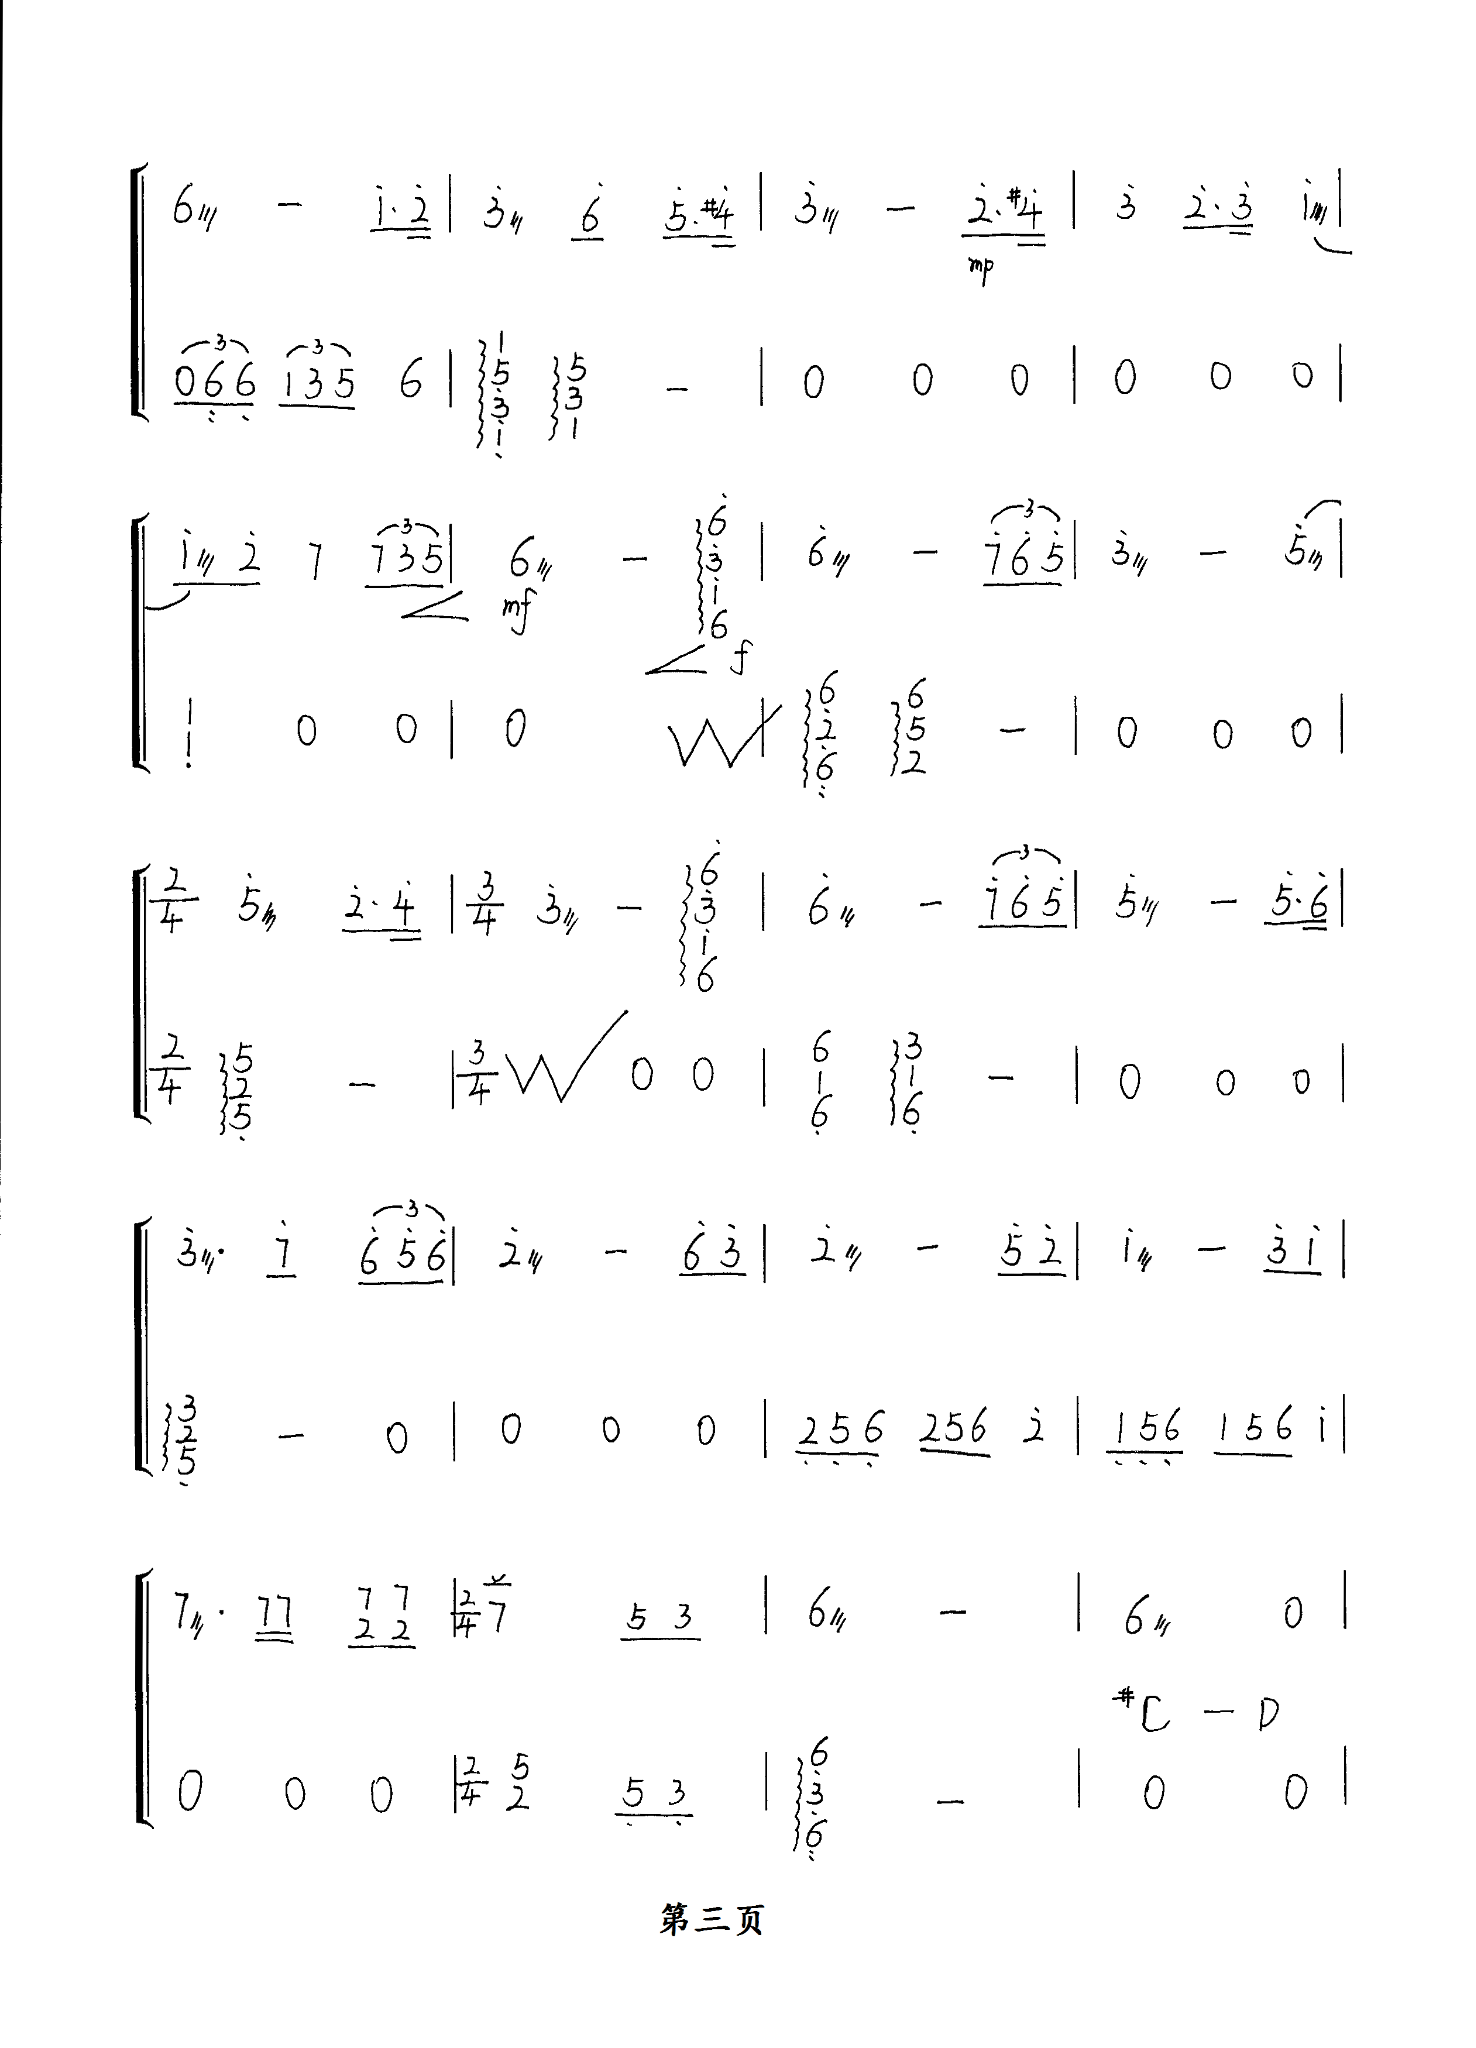 6 - i·2 | 3 6 5·#4 | 3 - 2·#4 | 3 2·3 i |
mp
3 3
066 135 6 | 1531 531 - | 0 0 0 | 0 0 0 |
3 3
i 2 7 735 | 6 - 63i6 | 6 - 765 | 3 - 5 |
mf f
0 0 | 0 | 626 652 - | 0 0 0 |
3
2/4 5 2·4 | 3/4 3 - 63i6 | 6 - 765 | 5 - 5·6 |
2/4 525 - | 3/4 0 0 | 616 316 - | 0 0 0 |
3
3· 7 656 | 2 - 63 | 2 - 52 | i - 3i |
325 - 0 | 0 0 0 | 256 256 2 | 156 156 i |
7· 77 77 22 | 2/4 7 53 | 6 - | 6 0 |
#C - D
0 0 0 | 2/4 52 53 | 636 - | 0 0 |
第三页